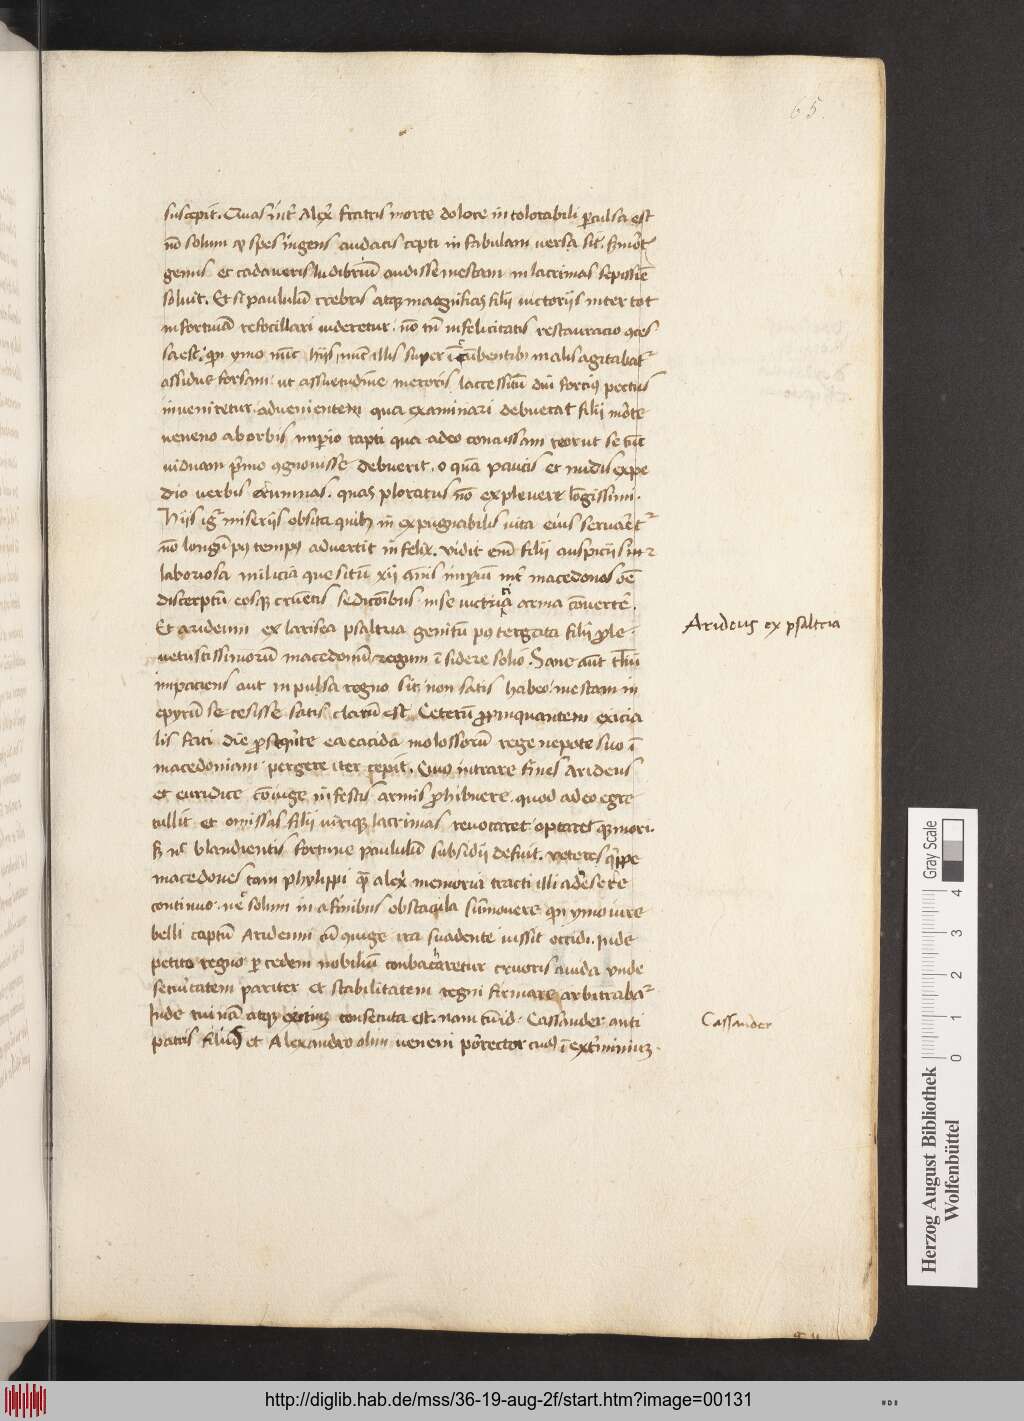 65.
suscepit. Quas int̃ Alex̃ fratris morte dolore intolorabili ꝑculsa est
nõ solum ꝙ spes ingens audacis cepti in fabulam versa sit. s; mõt
genus et cadaveris ludibriũ audisse mestam in lacrimas sepissĩe
solvit. Et si paululũ crebris atq; magnificis filii victoriis inter tot
infortuĩa refocillari videretur. nõ tñ infelicitatis restauracio
sa est. qn ymo nũc hijs nũc illis super ĩcũbentibꝫ malis agitabat᷑
assidue forsam ut assuetudine meroris laccessitũ dũ forciꝯ pectus
inveniretur advenientem qua examinari debuerat filij mõte
veneno ab orbis imꝑio rapti qua adeo concussam reor ut se tũc
viduam pr̃mo ꝯgnovisse debuerit. o quã paucis et nudis expe
dio verbis erumnas. quas ploratus nõ explevere lõgissimi.
Hijs ig̃ miserijs obsita quibꝫ inexpugnabilis vita eius servare᷑t
nõ longũ pꝯ tempꝯ advertit infelix. vidit em̃ filij auspicijs
laboriosa milicia quesitũ xij annis imꝑiũ int̃ macedonas õe
discerptũ eosq; cruẽtis sedicõibus in se victricia arma cõvertẽ.
Et arideum ex larisea psaltria genitũ pꝯ tergata filij ꝓle
vetustissimorũ macedonũ regum ĩsidere solio. Sane aut
impaciens aut inpulsa regno sit non satis habeo. mestam in
epyrũ secesisse satis clarũ est. Ceterũ ꝓpinquantem exicia
lis fati diẽ ꝓsequẽte eaeacida molossorũ rege nepote suo ĩ
macedoniam pergere iter cepit. Quo intrare fines Arideus
et euridice cõiuge infestis armis ꝓhibuere. quod adeo egre
tullit et omissas filij virique lacrimas revocaret optaretq; mori.
s; nc̃ blandientis fortune paululũ subsidij defuit. veteres q̃ppe
macedones tam phylippi q̃ alex̃ memoria tracti illi adesere
continuo. ne solum in afinibus obstacula sũmovere qn ymo iure
belli captũ Arideum cũ ꝯiuge ita suadente iussit occidi. Inde
petito regno ꝑ cedem nobiliũ conbacaretur cruoris avida unde
securitatem pariter et stabilitatem regni firmare arbitraba᷑
Inde ruinã atq; exitium consecuta est. nam tũ id. Cassander anti
patris filius et Alexandro olim veneni porrector cuiꝯ ĩ exterminium.
Arideus ex psaltria
Cassander
Gray Scale
0 1 2 3 4
Herzog August Bibliothek
Wolfenbüttel
http://diglib.hab.de/mss/36-19-aug-2f/start.htm?image=00131